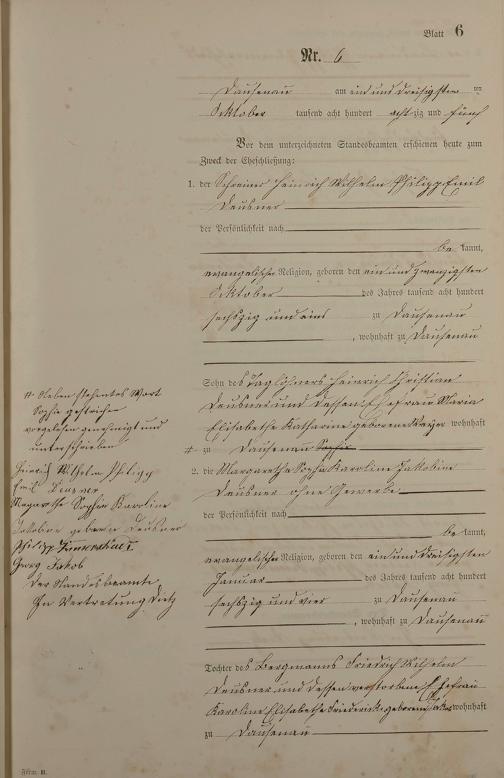 Blatt 6
Nr. 6
Dausenau am ein und dreißigsten ten
Oktober tausend acht hundert achtzig und fünf
Vor dem unterzeichneten Standesbeamten erschienen heute zum
Zweck der Eheschließung:
1. der Schreiner Heinrich Wilhelm Philipp Emil
Deusner
der Persönlichkeit nach
be kannt,
evangelischer Religion, geboren den ein und zwanzigsten
Oktober des Jahres tausend acht hundert
sechszig und eins zu Dausenau
, wohnhaft zu Dausenau
Sohn des Taglöhners Heinrich Christian
Deusner und dessen Ehefrau Maria
Elisabethe Katharine geborene wohnhaft
# zu Dausenau Sophie
2. die Margarethe Sophie Karoline Jakobine
Deusner ohne Gewerbe
der Persönlichkeit nach
be kannt,
evangelischer Religion, geboren den ein und dreißigsten
Januar des Jahres tausend acht hundert
sechszig und vier zu Dausenau
, wohnhaft zu Dausenau
Tochter des Bergmanns Friedrich Wilhelm
Deusner und dessen verstorbene Ehefrau
Karoline Elisabethe Friederike geborene wohnhaft
zu Dausenau
# Neben stehendes Wort
Sophie gestrichen
vorgelesen genehmigt und
unterschrieben
Heinrich Wilhelm Philipp
Emil Deusner
Margarethe Sophie Karoline
Jakobine geborn Deusner
Philipp
Georg Jakob
Der Standesbeamte
In Vertretung Dietz
Form. B.